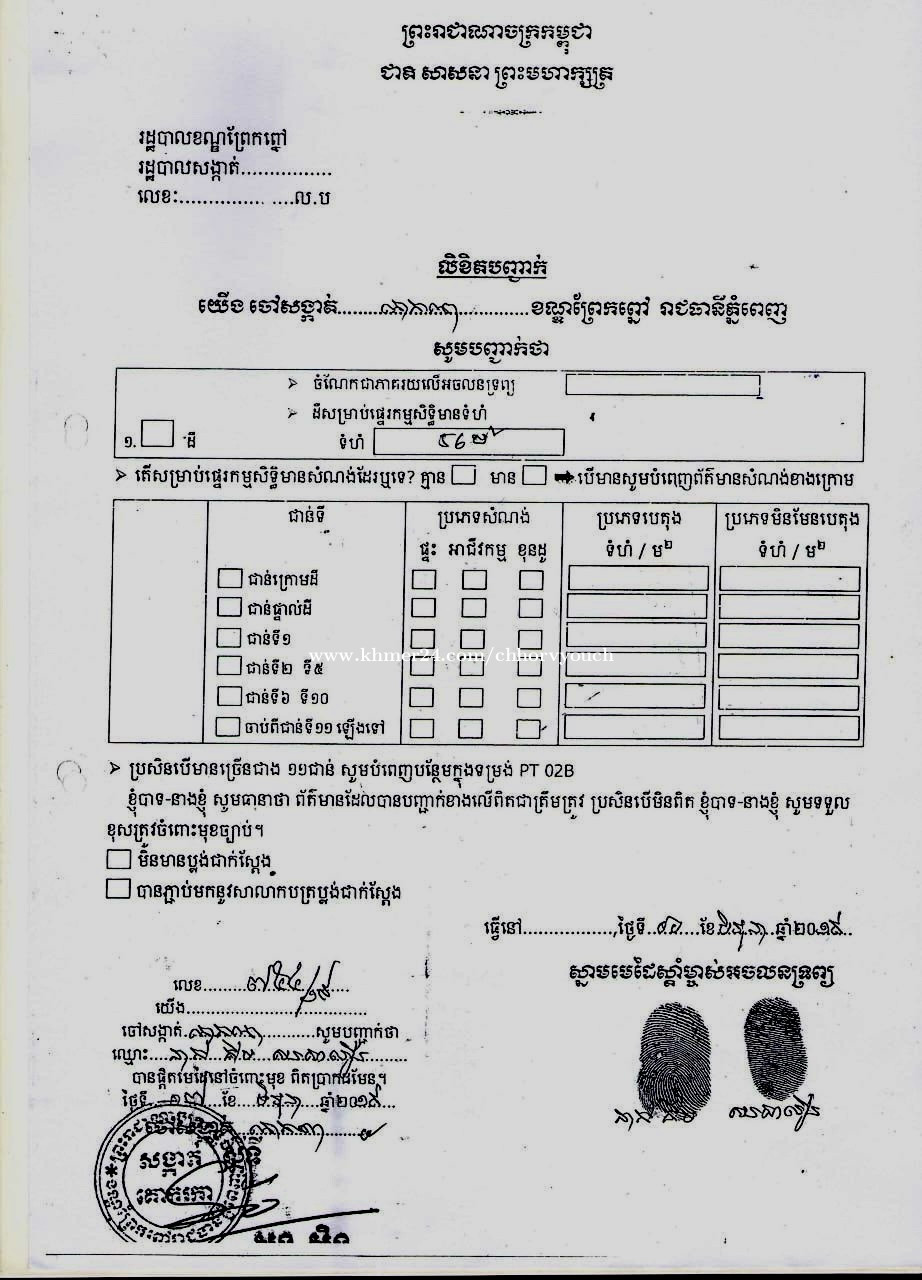 ព្រះរាជាណាចក្រកម្ពុជា
ជាតិ សាសនា ព្រះមហាក្សត្រ
រដ្ឋបាលខណ្ឌព្រែកព្នៅ
រដ្ឋបាលសង្កាត់................
លេខ:............... ....ល.ប
លិខិតបញ្ជាក់
យើង ចៅសង្កាត់.......គោករកា............ខណ្ឌព្រែកព្នៅ រាជធានីភ្នំពេញ
សូមបញ្ជាក់ថា
➢ ចំណែកជាភាគរយលើអចលនទ្រព្យ
➢ ដីសម្រាប់ផ្ទេរកម្មសិទ្ធិមានទំហំ
១. ដី ទំហំ ៥៦ម²
➢ តើសម្រាប់ផ្ទេរកម្មសិទ្ធិមានសំណង់ដែរឬទេ? គ្មាន មាន ➡បើមានសូមបំពេញព័ត៌មានសំណង់ខាងក្រោម
ជាន់ទី ប្រភេទសំណង់ ប្រភេទបេតុង ប្រភេទមិនមែនបេតុង
ផ្ទះ អាជីវកម្ម ខុនដូ ទំហំ / ម២ ទំហំ / ម២
ជាន់ក្រោមដី
ជាន់ផ្ទាល់ដី
ជាន់ទី១
www.khmer24.com/chhorvyouch
ជាន់ទី២ ទី៥
ជាន់ទី៦ ទី១០
ចាប់ពីជាន់ទី១១ ឡើងទៅ
➢ ប្រសិនបើមានច្រើនជាង ១១ជាន់ សូមបំពេញបន្ថែមក្នុងទម្រង់ PT 02B
ខ្ញុំបាទ-នាងខ្ញុំ សូមធានាថា ព័ត៌មានដែលបានបញ្ជាក់ខាងលើពិតជាត្រឹមត្រូវ ប្រសិនបើមិនពិត ខ្ញុំបាទ-នាងខ្ញុំ សូមទទួល
ខុសត្រូវចំពោះមុខច្បាប់។
មិនមានប្លង់ជាក់ស្តែង
បានភ្ជាប់មកនូវសាលាកបត្រប្លង់ជាក់ស្តែង
ធ្វើនៅ................,ថ្ងៃទី.......ខែ មិថុនា ឆ្នាំ២០១៩..
ស្នាមមេដៃស្តាំម្ចាស់អចលនទ្រព្យ
លេខ.......៧៥៤/១៩......
យើង................................
ចៅសង្កាត់.គោករកា.........សូមបញ្ជាក់ថា
ឈ្មោះ....
បានផ្តិតមេដៃនៅចំពោះមុខ ពិតប្រាកដមែន។
ថ្ងៃទី...១៧...ខែ...មិថុនា...ឆ្នាំ២០១៩...
ចៅសង្កាត់ គោករកា
សង្កាត់
គោករកា